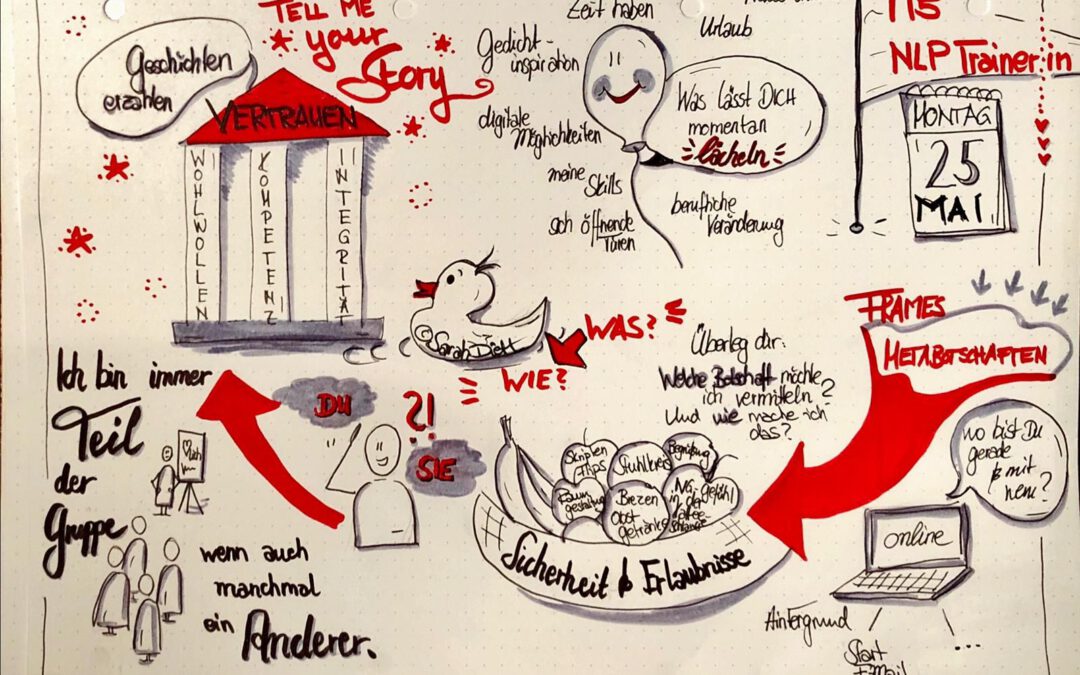 TELL ME
your
Story
Geschichten
erzählen
VERTRAUEN
WOHLWOLLEN
KOMPETENZ
INTEGRITÄT
Zeit haben
Urlaub
Gedicht-
inspiration
digitale
Möglichkeiten
meine
Skills
sich öffnende
Türen
berufliche
Veränderung
Was lässt DICH
momentan
lächeln
NLP Trainer:in
MONTAG
25
MAI
©Sarah Diett
WAS?
WIE?
Überleg dir:
Welche Botschaft möchte
ich vermitteln?
Und wie mache ich
das?
FRAMES
METABOTSCHAFTEN
wo bist Du
gerade
& mit
wem?
online
Hintergrund
Start
EMail
...
Skripten
Stuhlkreis
Begrüßung
Raum
gestaltung
Brezen
Obst
getränke
in der
Kaffee
schlange
gefühl
Sicherheit & Erlaubnisse
DU
?!
SIE
Ich bin immer
Teil
der
Gruppe
wenn auch
manchmal
ein Anderer.